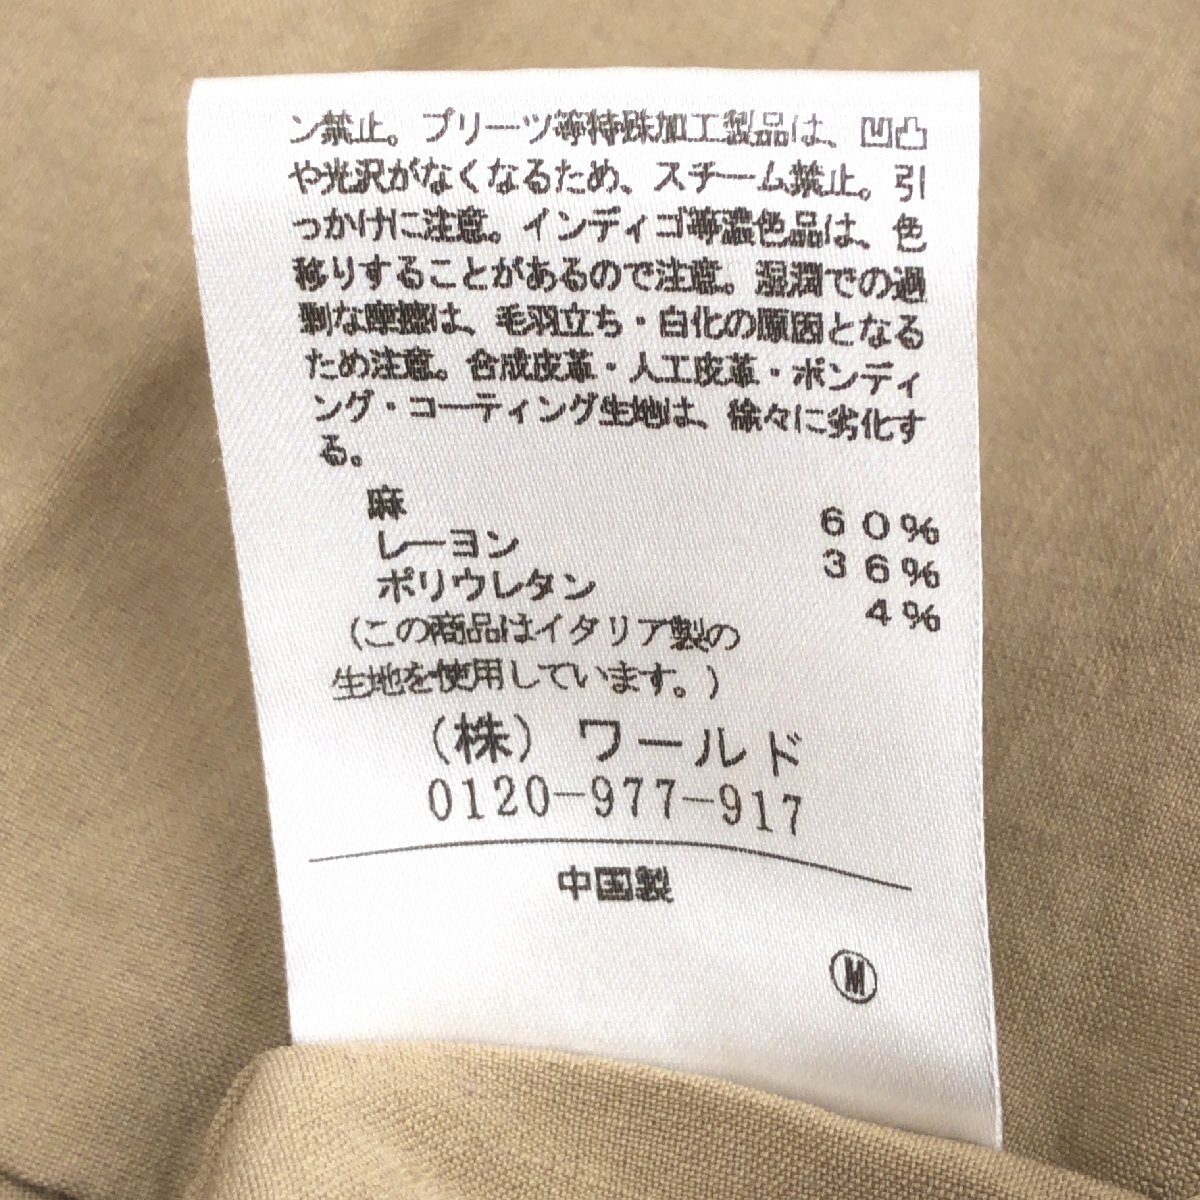 ン禁止。プリーツ等特殊加工製品は、凹凸
や光沢がなくなるため、スチーム禁止。引
っかけに注意。インディゴ等濃色品は、色
移りすることがあるので注意。湿潤での過
剰な摩擦は、毛羽立ち・白化の原因となる
ため注意。合成皮革・人工皮革・ボンディ
ング・コーティング生地は、徐々に劣化す
る。
麻 60%
レーヨン 36%
ポリウレタン 4%
(この商品はイタリア製の
生地を使用しています。)
(株)ワールド
0120-977-917
中国製
Ⓜ